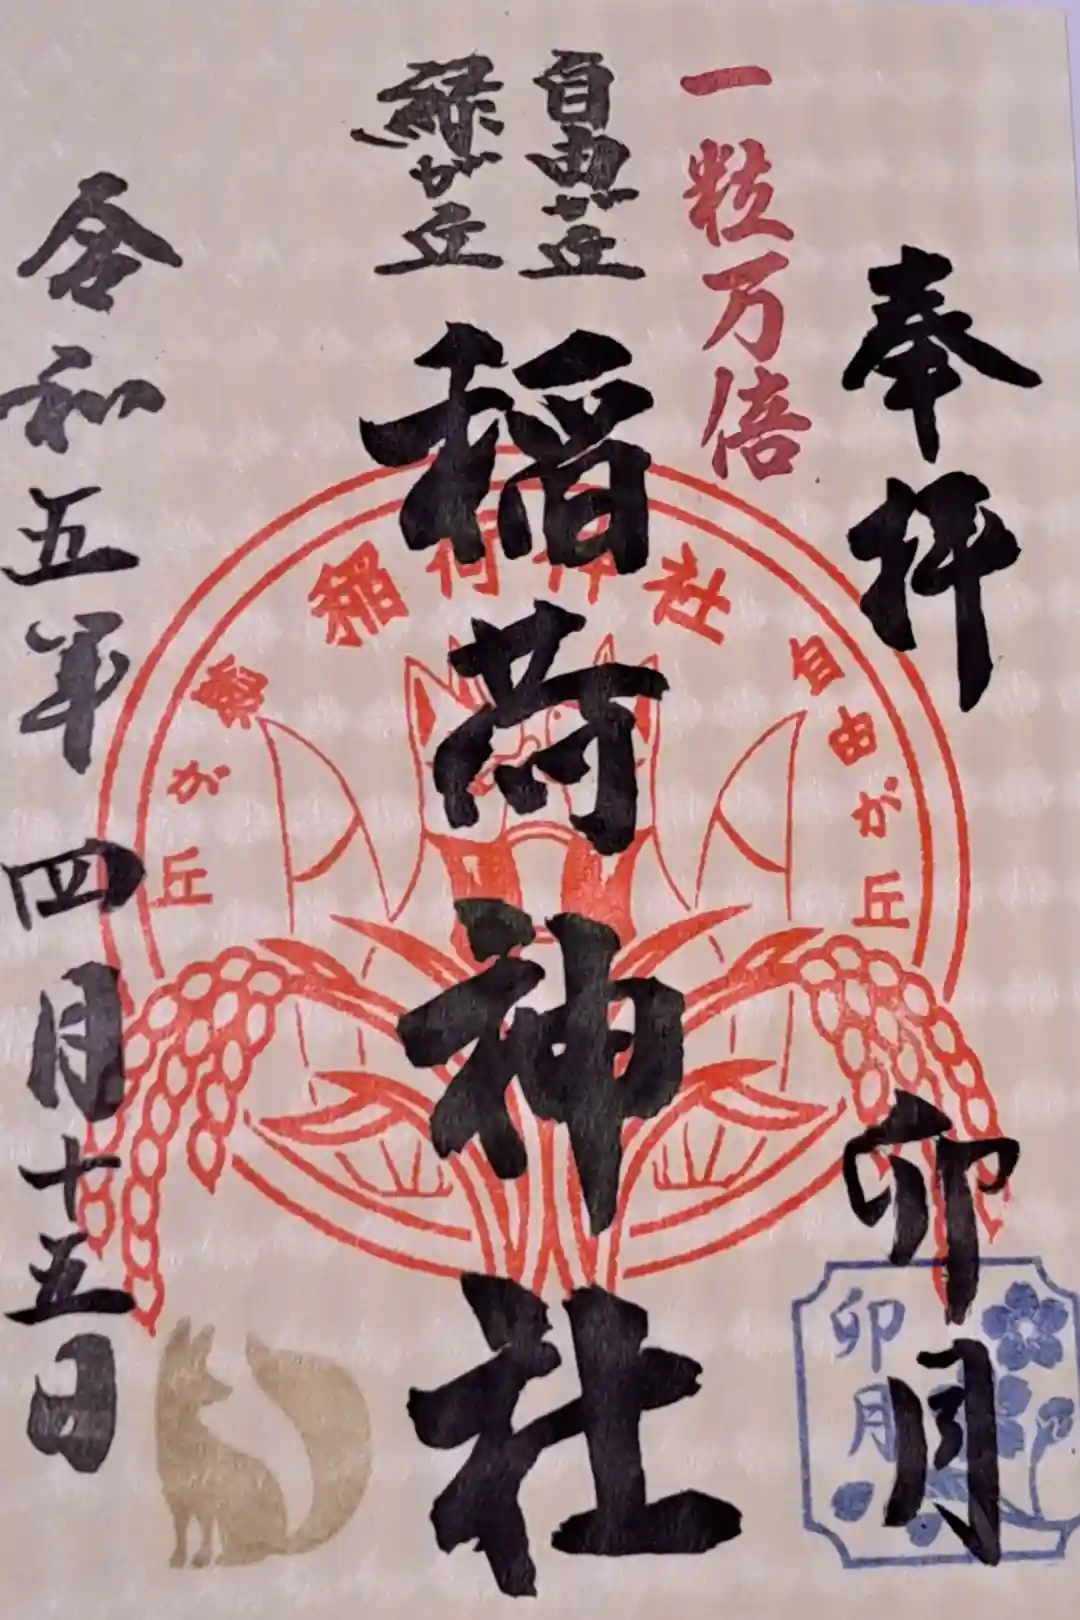 奉拝
卯月
一粒万倍
自由が丘
緑が丘
稲荷神社
令和五年四月十五日
自由が丘
稲荷神社
緑が丘
卯月